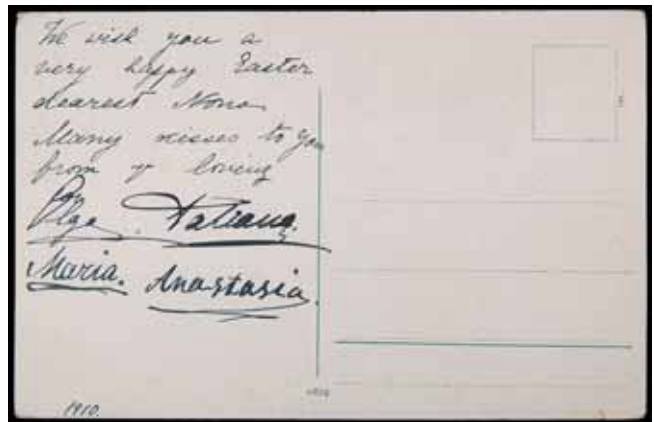 We wish you a
very happy Easter
dearest Nona
Many kisses to you
from yr loving
Olga. Tatiana.
Maria. Anastasia.
1910.